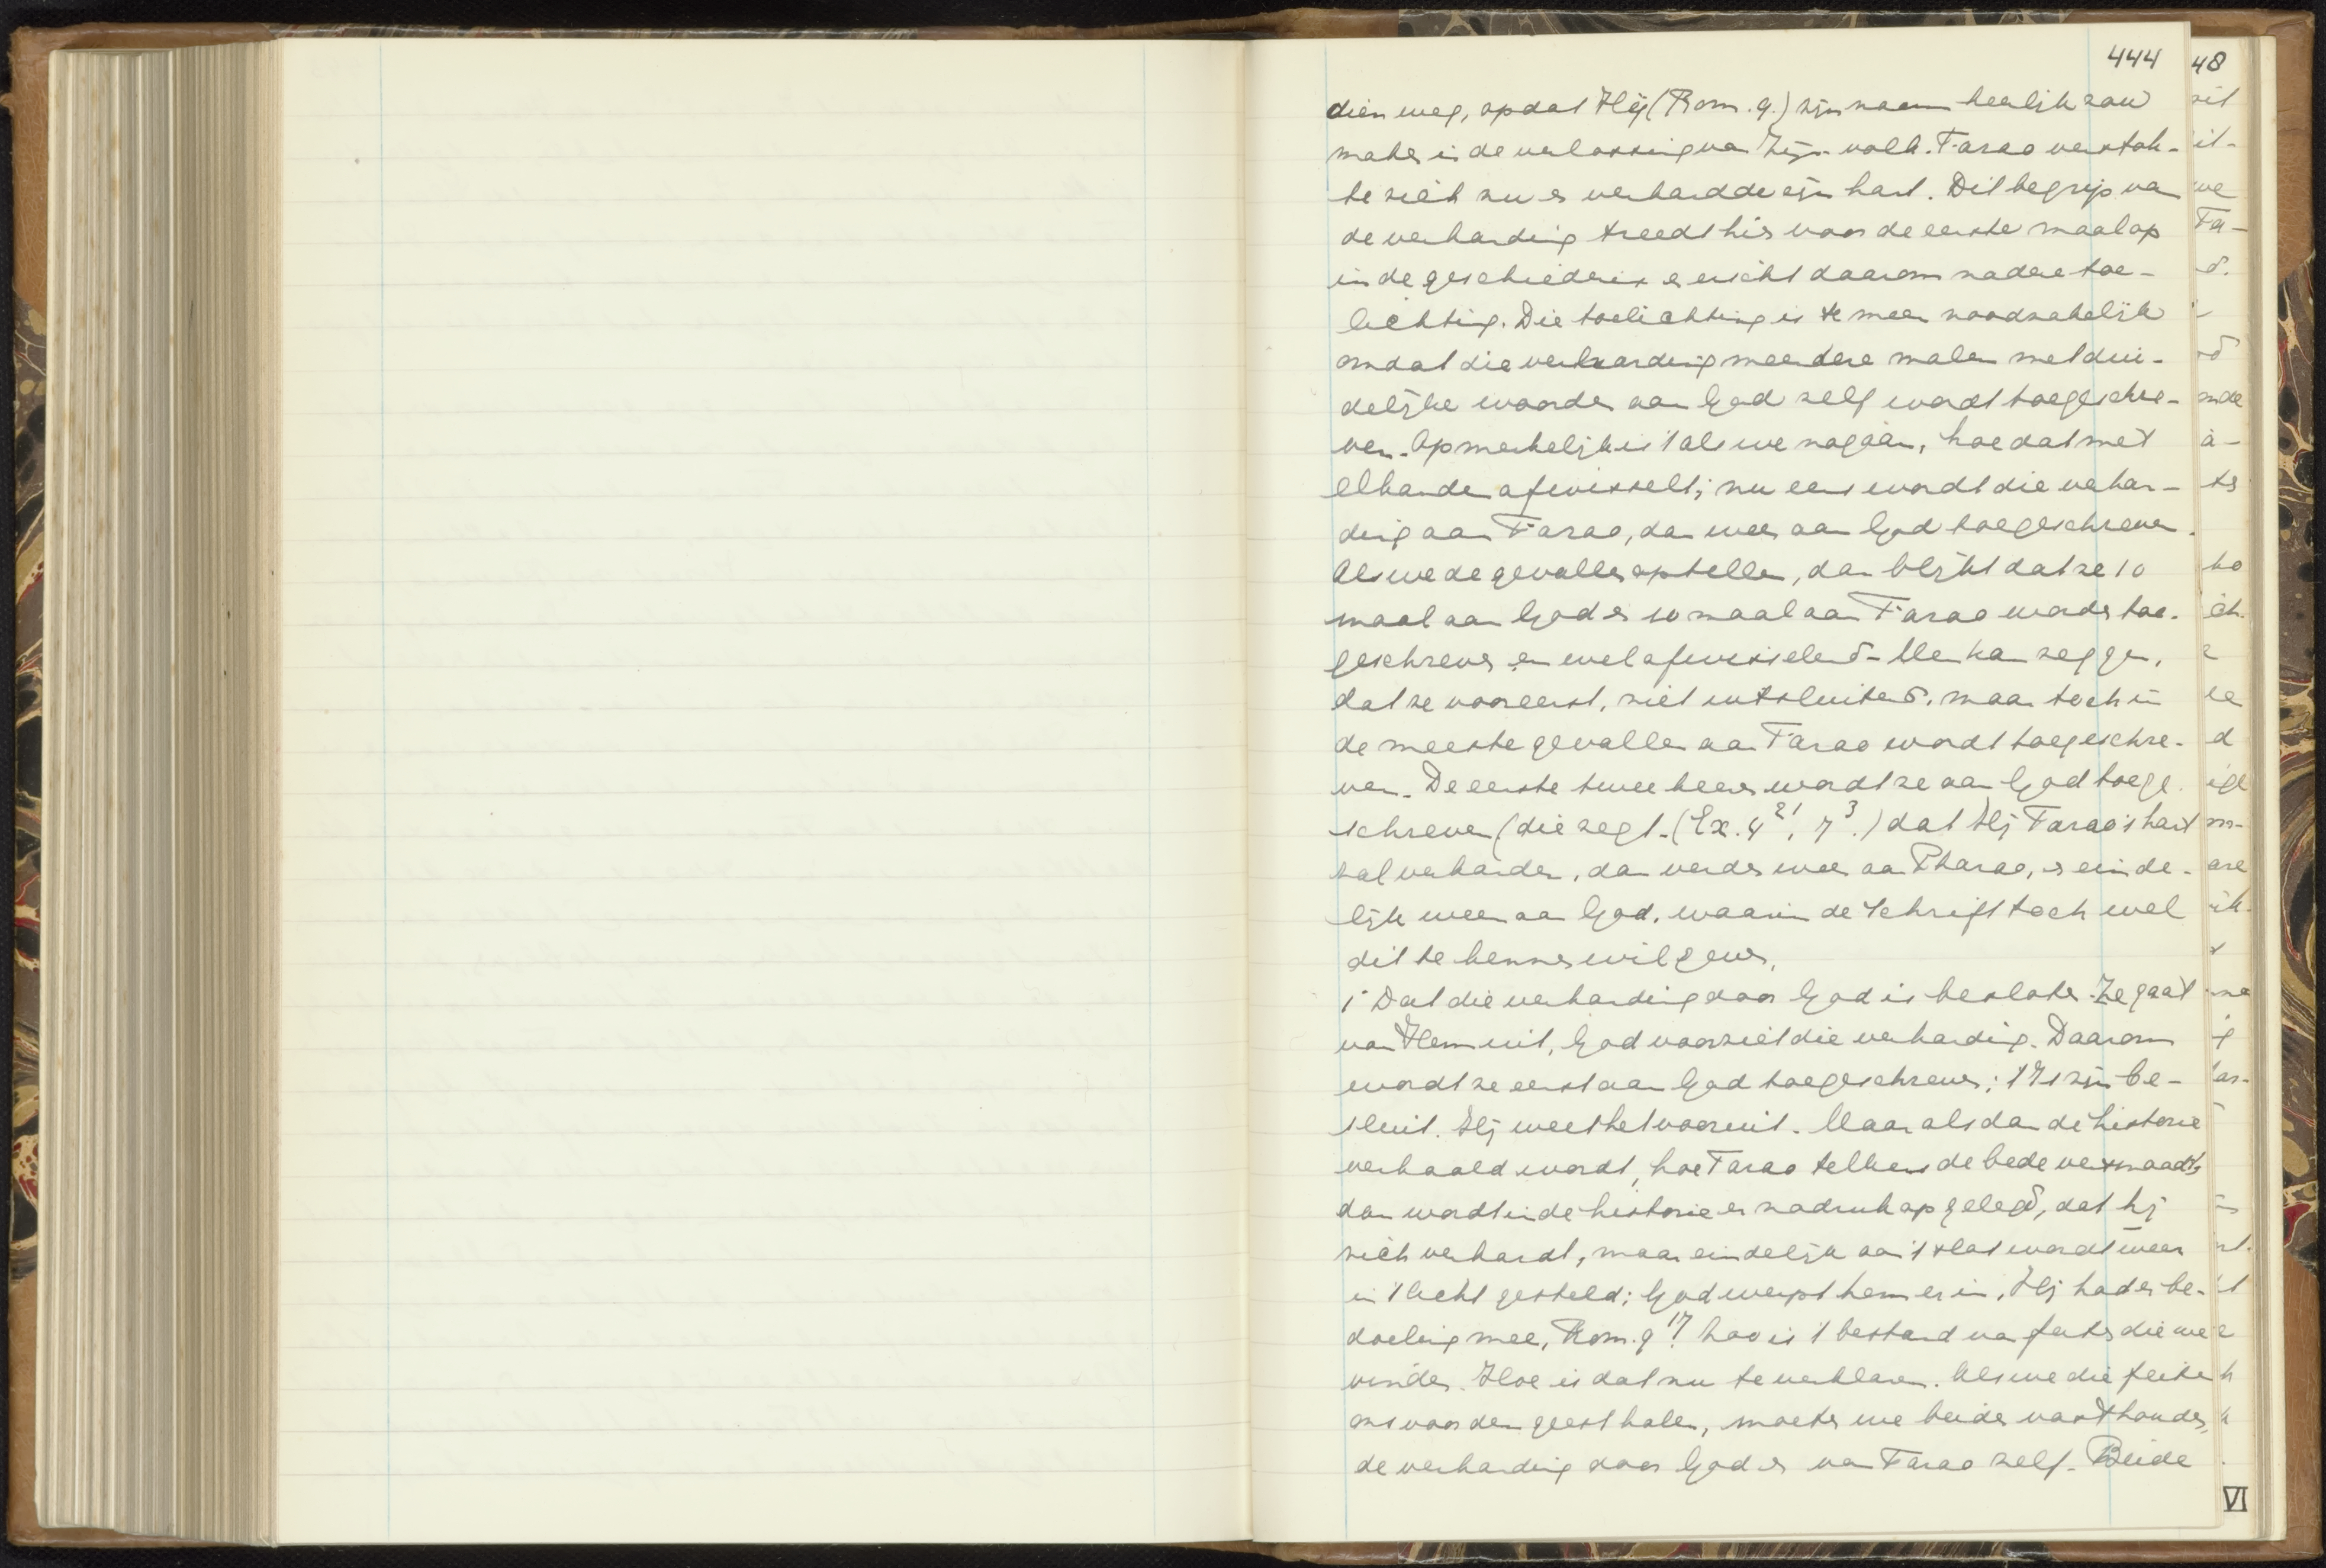 444
48
dien weg, opdat Hij (Rom. 9.) zijn naam heerlijk zou
maken in de verlossing van Zijn volk. Farao verstok-
te zich nu en verhardde zijn hart. Dit begrip van
de verharding treedt hier voor de eerste maal op
in de geschiedenis en eischt daarom nadere toe-
lichting. Die toelichting is te meer noodzakelijk
omdat die verharding meerdere malen met dui-
delijke woorden aan God zelf wordt toegeschre-
ven. Opmerkelijk is 't als we nagaan, hoe dat met
elkander afwisselt; nu eens wordt die verhar-
ding aan Farao, dan weer aan God toegeschreven.
Als we de gevallen optellen, dan blijkt dat ze 10
maal aan God en 10 maal aan Farao worden toe-
geschreven en wel afwisselend. Men kan zeggen,
dat ze vooreerst, niet uitsluitend, maar toch in
de meeste gevallen aan Farao wordt toegeschre-
ven. De eerste twee keeren wordt ze aan God toege-
schreven (die zegt. (Ex. 4 21, 7 3.) dat Hij Farao's hart
zal verharden, dan verder weer aan Pharao, en einde-
lijk weer aan God, waarin de Schrift toch wel
dit te kennen wil geven,
1° Dat die verharding door God is besloten. Ze gaat
van Hem uit, God voorziet die verharding. Daarom
wordt ze eerst aan God toegeschreven; 't Is zijn be-
sluit. Hij weet het vooruit. Maar als dan de historie
verhaald wordt, hoe Farao telkens de bede versmaadt,
dan wordt in de historie er nadruk op gelegd, dat hij
zich verhardt, maar eindelijk aan 't slot wordt weer
in 't licht gesteld; God werpt hem er in, Hij had er be-
doeling mee, Rom. 9 17. Zoo is 't bestand van feiten die we
vinden. Hoe is dat nu te verklaren. Als we die feiten
ons voor den geest halen, moeten we beide vasthouden,
de verharding door God en van Farao zelf. Beide
VI